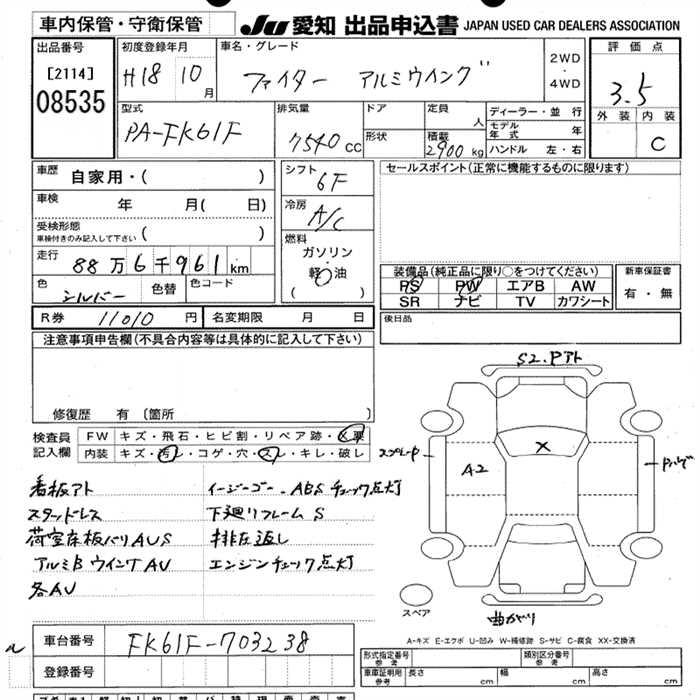 車内保管・守衛保管
JU 愛知 出品申込書 JAPAN USED CAR DEALERS ASSOCIATION
出品番号
[2114]
08535
初度登録年月
H18 10月
車名・グレード
ファイター アルミウイング
2WD
・
4WD
評価点
3.5
外装 内装
C
型式
PA-FK61F
排気量
7540 CC
ドア
形状
定員
人
積載
2900 kg
ディーラー・並行
モデル年式 年
ハンドル 左・右
車歴
自家用・( )
車検
年 月( 日)
受検形態
車検付きのみ記入して下さい ( )
走行
88万6千961km
色
シルバー
色替
色コード
シフト
6F
冷房
A/C
燃料
ガソリン
軽油
( )
セールスポイント(正常に機能するものに限ります)
装備品(純正品に限り○をつけてください)
PS PW エアB AW
SR ナビ TV カワシート
新車保証書
有・無
後日品
R券 11010 円
名変期限 月 日
注意事項申告欄(不具合内容等は具体的に記入して下さい)
修復歴 有 〔箇所 〕
検査員
記入欄
FW キズ・飛石・ヒビ割・リペア跡・X要
内装 キズ・汚レ・コゲ・穴・スレ・キレ・破レ
看板アト
スタッドレス
荷室床板バリAUS
アルミBウイングAU
各AU
イージーゴー、ABSチェック点灯
下廻リフレームS
排在返し
エンジンチェック点灯
S2.Pアト
X
A2
スペア
曲がり
A-キズ E-エクボ U-凹み W-補修跡 S-サビ C-腐食 XX-交換済
車台番号
FK61F-703238
登録番号
形式指定番号
参考
類別区分番号
参考
車庫証明用
参考
長さ cm
幅 cm
高さ cm